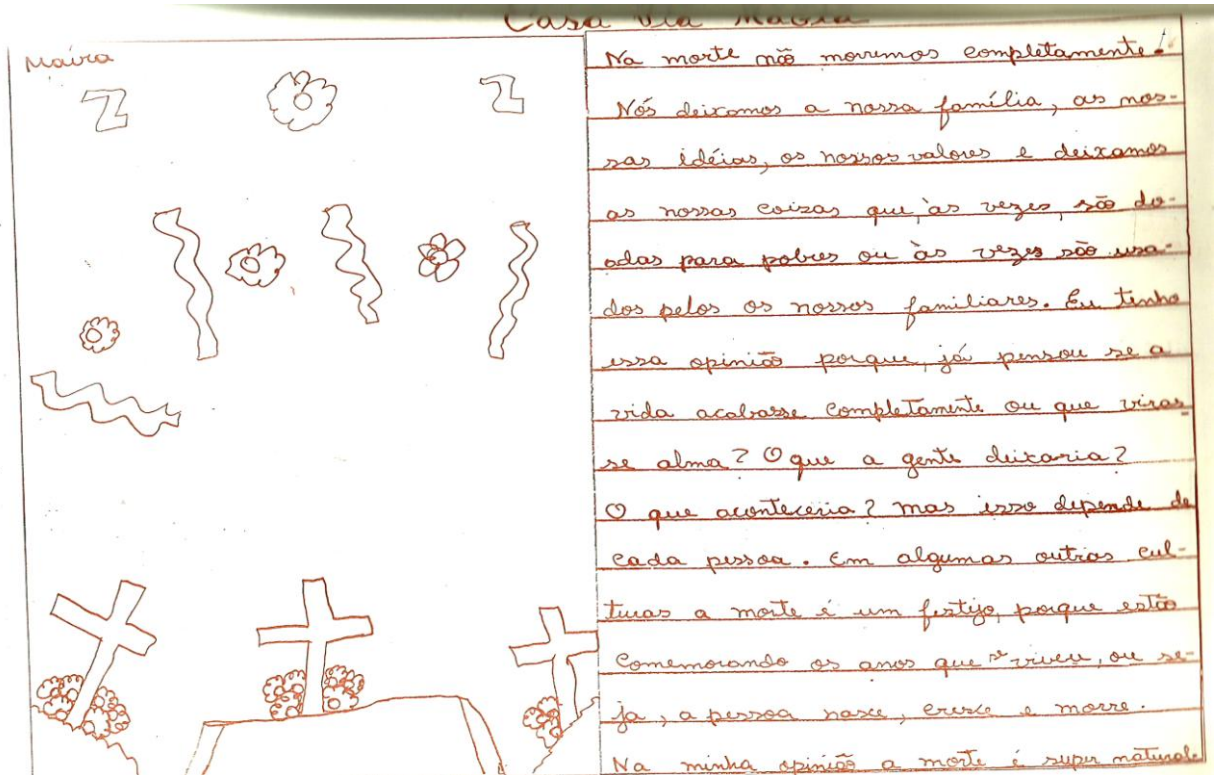 Casa Via Magia
Maíra
Na morte não morremos completamente!
Nós deixamos a nossa família, as nos-
sas idéias, os nossos valores e deixamos
as nossas coizas que, às vezes, são do-
adas para pobres ou às vezes são usa-
dos pelos os nossos familiares. Eu tenho
essa opinião porque, já pensou se a
vida acabasse completamente ou que viras-
se alma? O que a gente deixaria?
O que aconteceria? Mas isso depende de
cada pessoa. Em algumas outras cul-
turas a morte é um festijo, porque estão
comemorando os anos que se viveu, ou se-
ja, a pessoa nasce, cresce e morre.
Na minha opinião a morte é super natural.